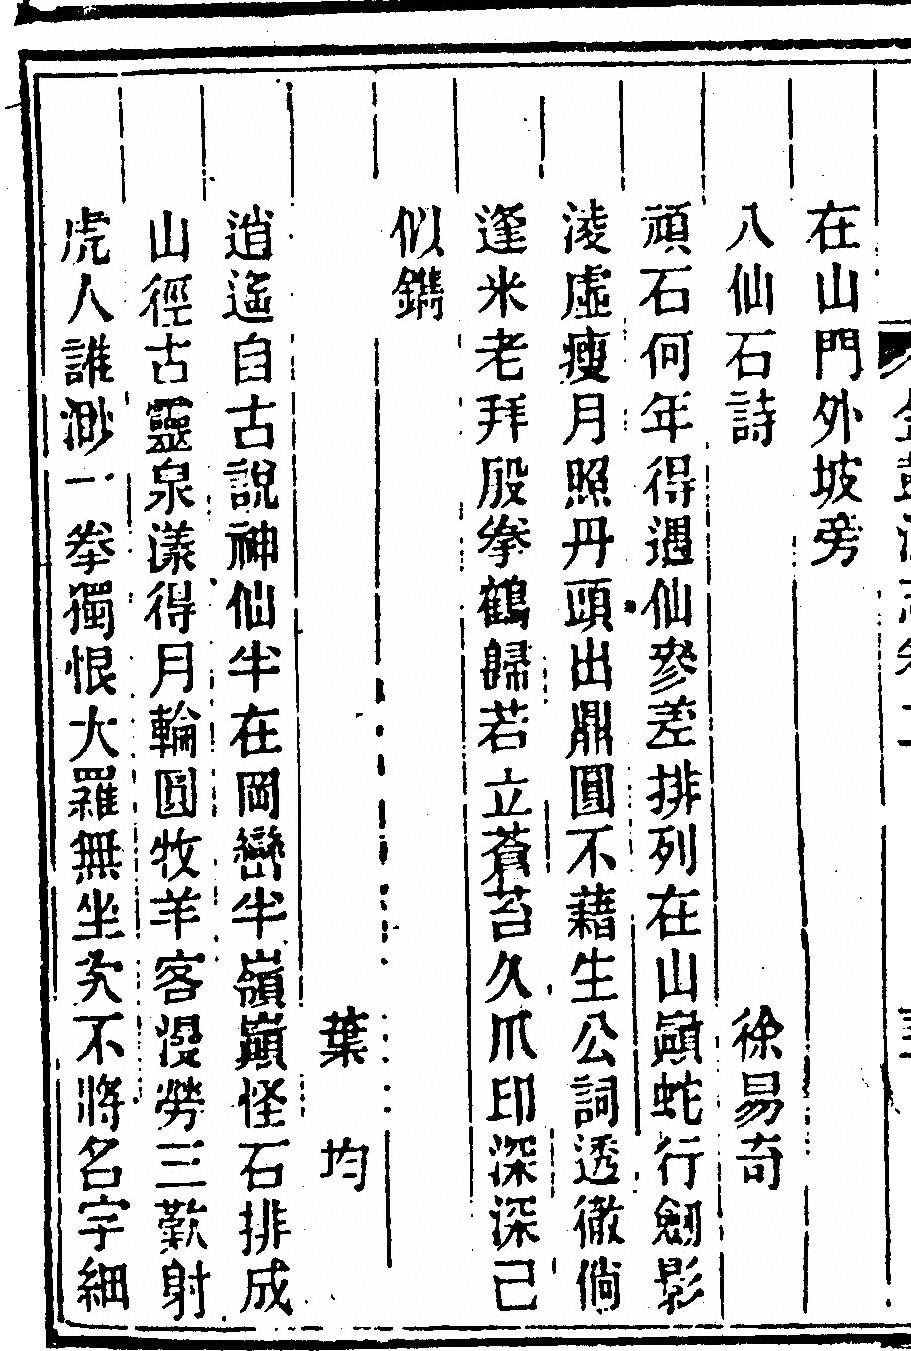 在山門外坡旁
八仙石詩　徐易奇
頑石何年得遇仙參差排列在山巔蛇行劍影
淩虛瘦月照丹頭出鼎圓不藉生公詞透徹倘
逢米老拜殷拳鶴歸若立蒼苔久爪印深深已
似鐫
葉均
逍遙自古說神仙半在岡巒半嶺巔怪石排成
山徑古靈泉漾得月輪圓牧羊客漫勞三歎射
虎人誰測一拳獨恨大羅無坐次不將名字細